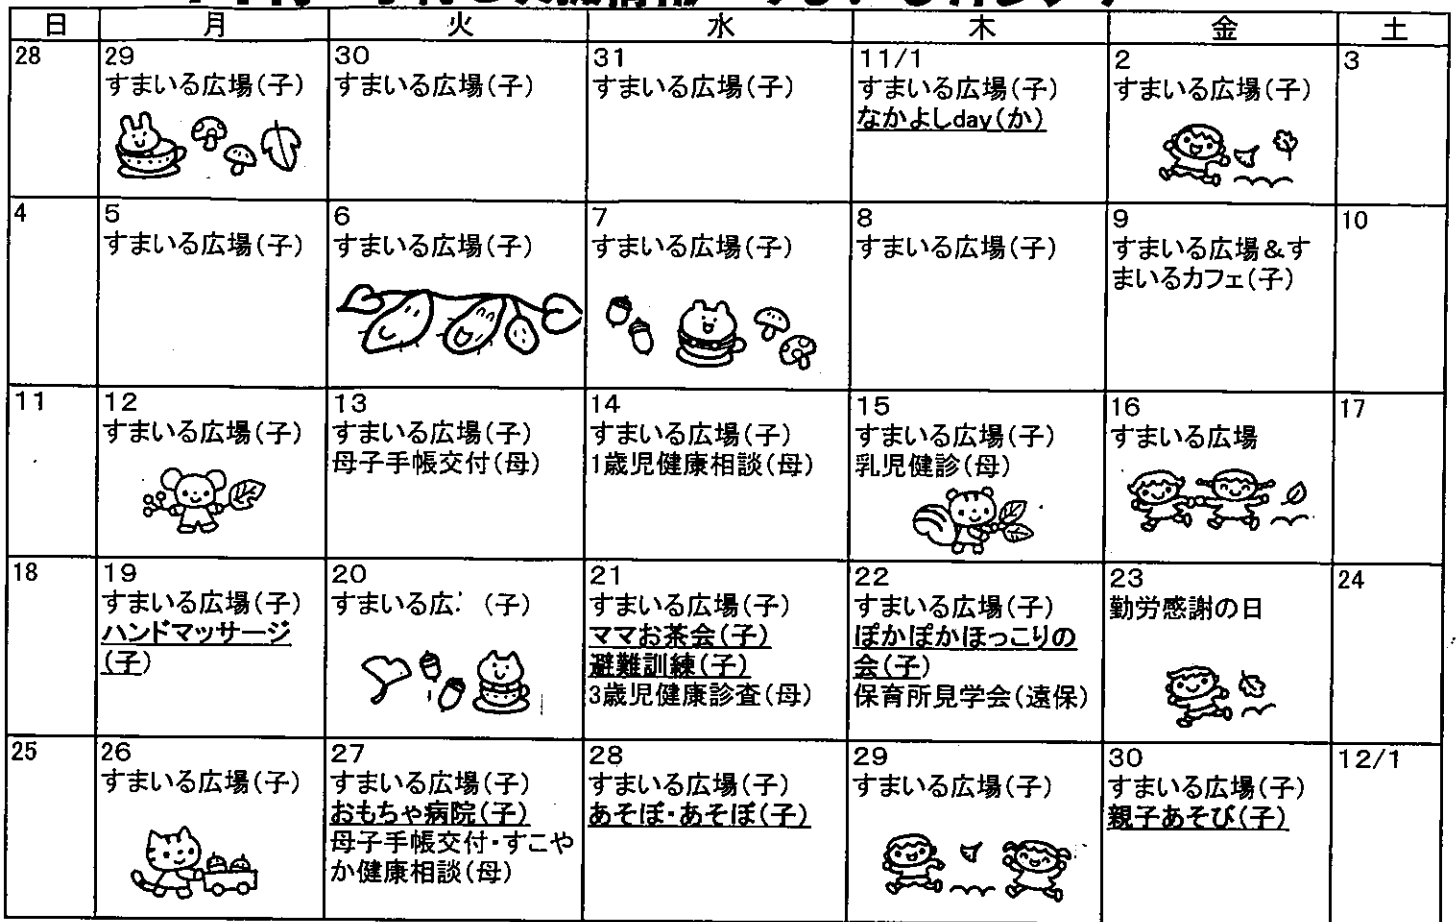 日 月 火 水 木 金 土
28
29
すまいる広場(子)
30
すまいる広場(子)
31
すまいる広場(子)
11/1
すまいる広場(子)
なかよしday(か)
2
すまいる広場(子)
3
4
5
すまいる広場(子)
6
すまいる広場(子)
7
すまいる広場(子)
8
すまいる広場(子)
9
すまいる広場&す
まいるカフェ(子)
10
11
12
すまいる広場(子)
13
すまいる広場(子)
母子手帳交付(母)
14
すまいる広場(子)
1歳児健康相談(母)
15
すまいる広場(子)
乳児健診(母)
16
すまいる広場
17
18
19
すまいる広場(子)
ハンドマッサージ
(子)
20
すまいる広 (子)
21
すまいる広場(子)
ママお茶会(子)
避難訓練(子)
3歳児健康診査(母)
22
すまいる広場(子)
ぽかぽかほっこりの
会(子)
保育所見学会(遠保)
23
勤労感謝の日
24
25
26
すまいる広場(子)
27
すまいる広場(子)
おもちゃ病院(子)
母子手帳交付・すこや
か健康相談(母)
28
すまいる広場(子)
あそぼ・あそぼ(子)
29
すまいる広場(子)
30
すまいる広場(子)
親子あそび(子)
12/1